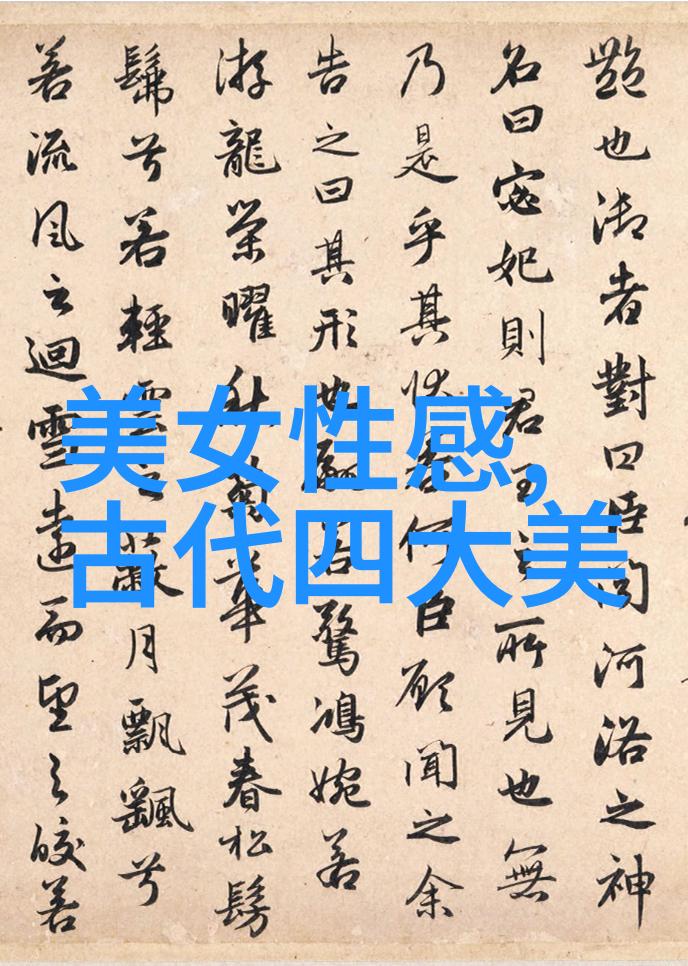 艷也御者對曰臣聞河洛之神
名曰宓妃則君王之所見也無
乃是乎其狀若何臣願聞之余
告之曰其形也翩若驚鴻婉若
游龍榮曜秋菊華茂春松髣
髴兮若輕雲之蔽月飄颻兮
若流風之迴雪遠而望之皎若
美女性感,
古代四大美